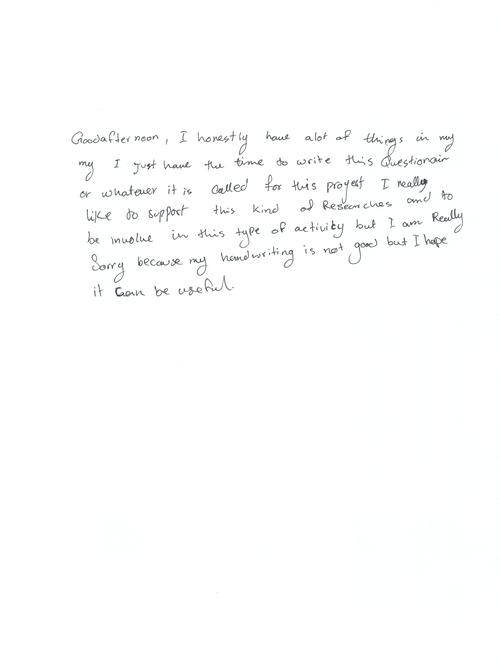 Goodafternoon, I honestly have alot of things in my
my I Just have the time to write this Questionair
or whatever it is called for this proyest I really
like to support this kind of Researches and to
be involve in this type of activity but I am Really
Sorry because my handwriting is not good but I hope
it Can be useful.